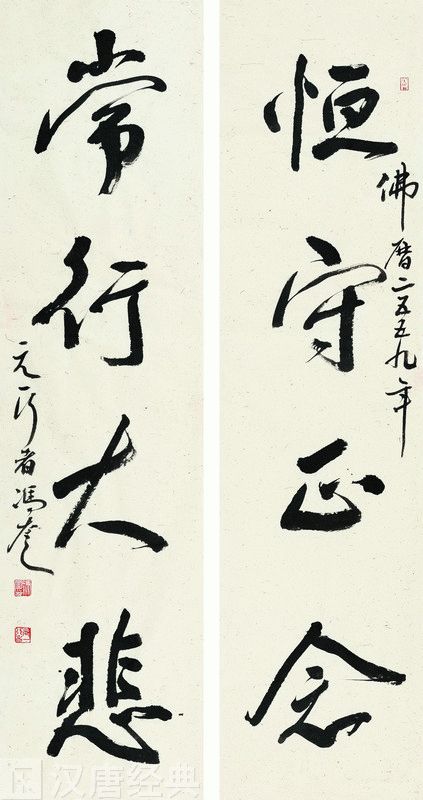 恒守正念
佛曆二五五九年
常行大悲
元行者馮奎
汉唐经典